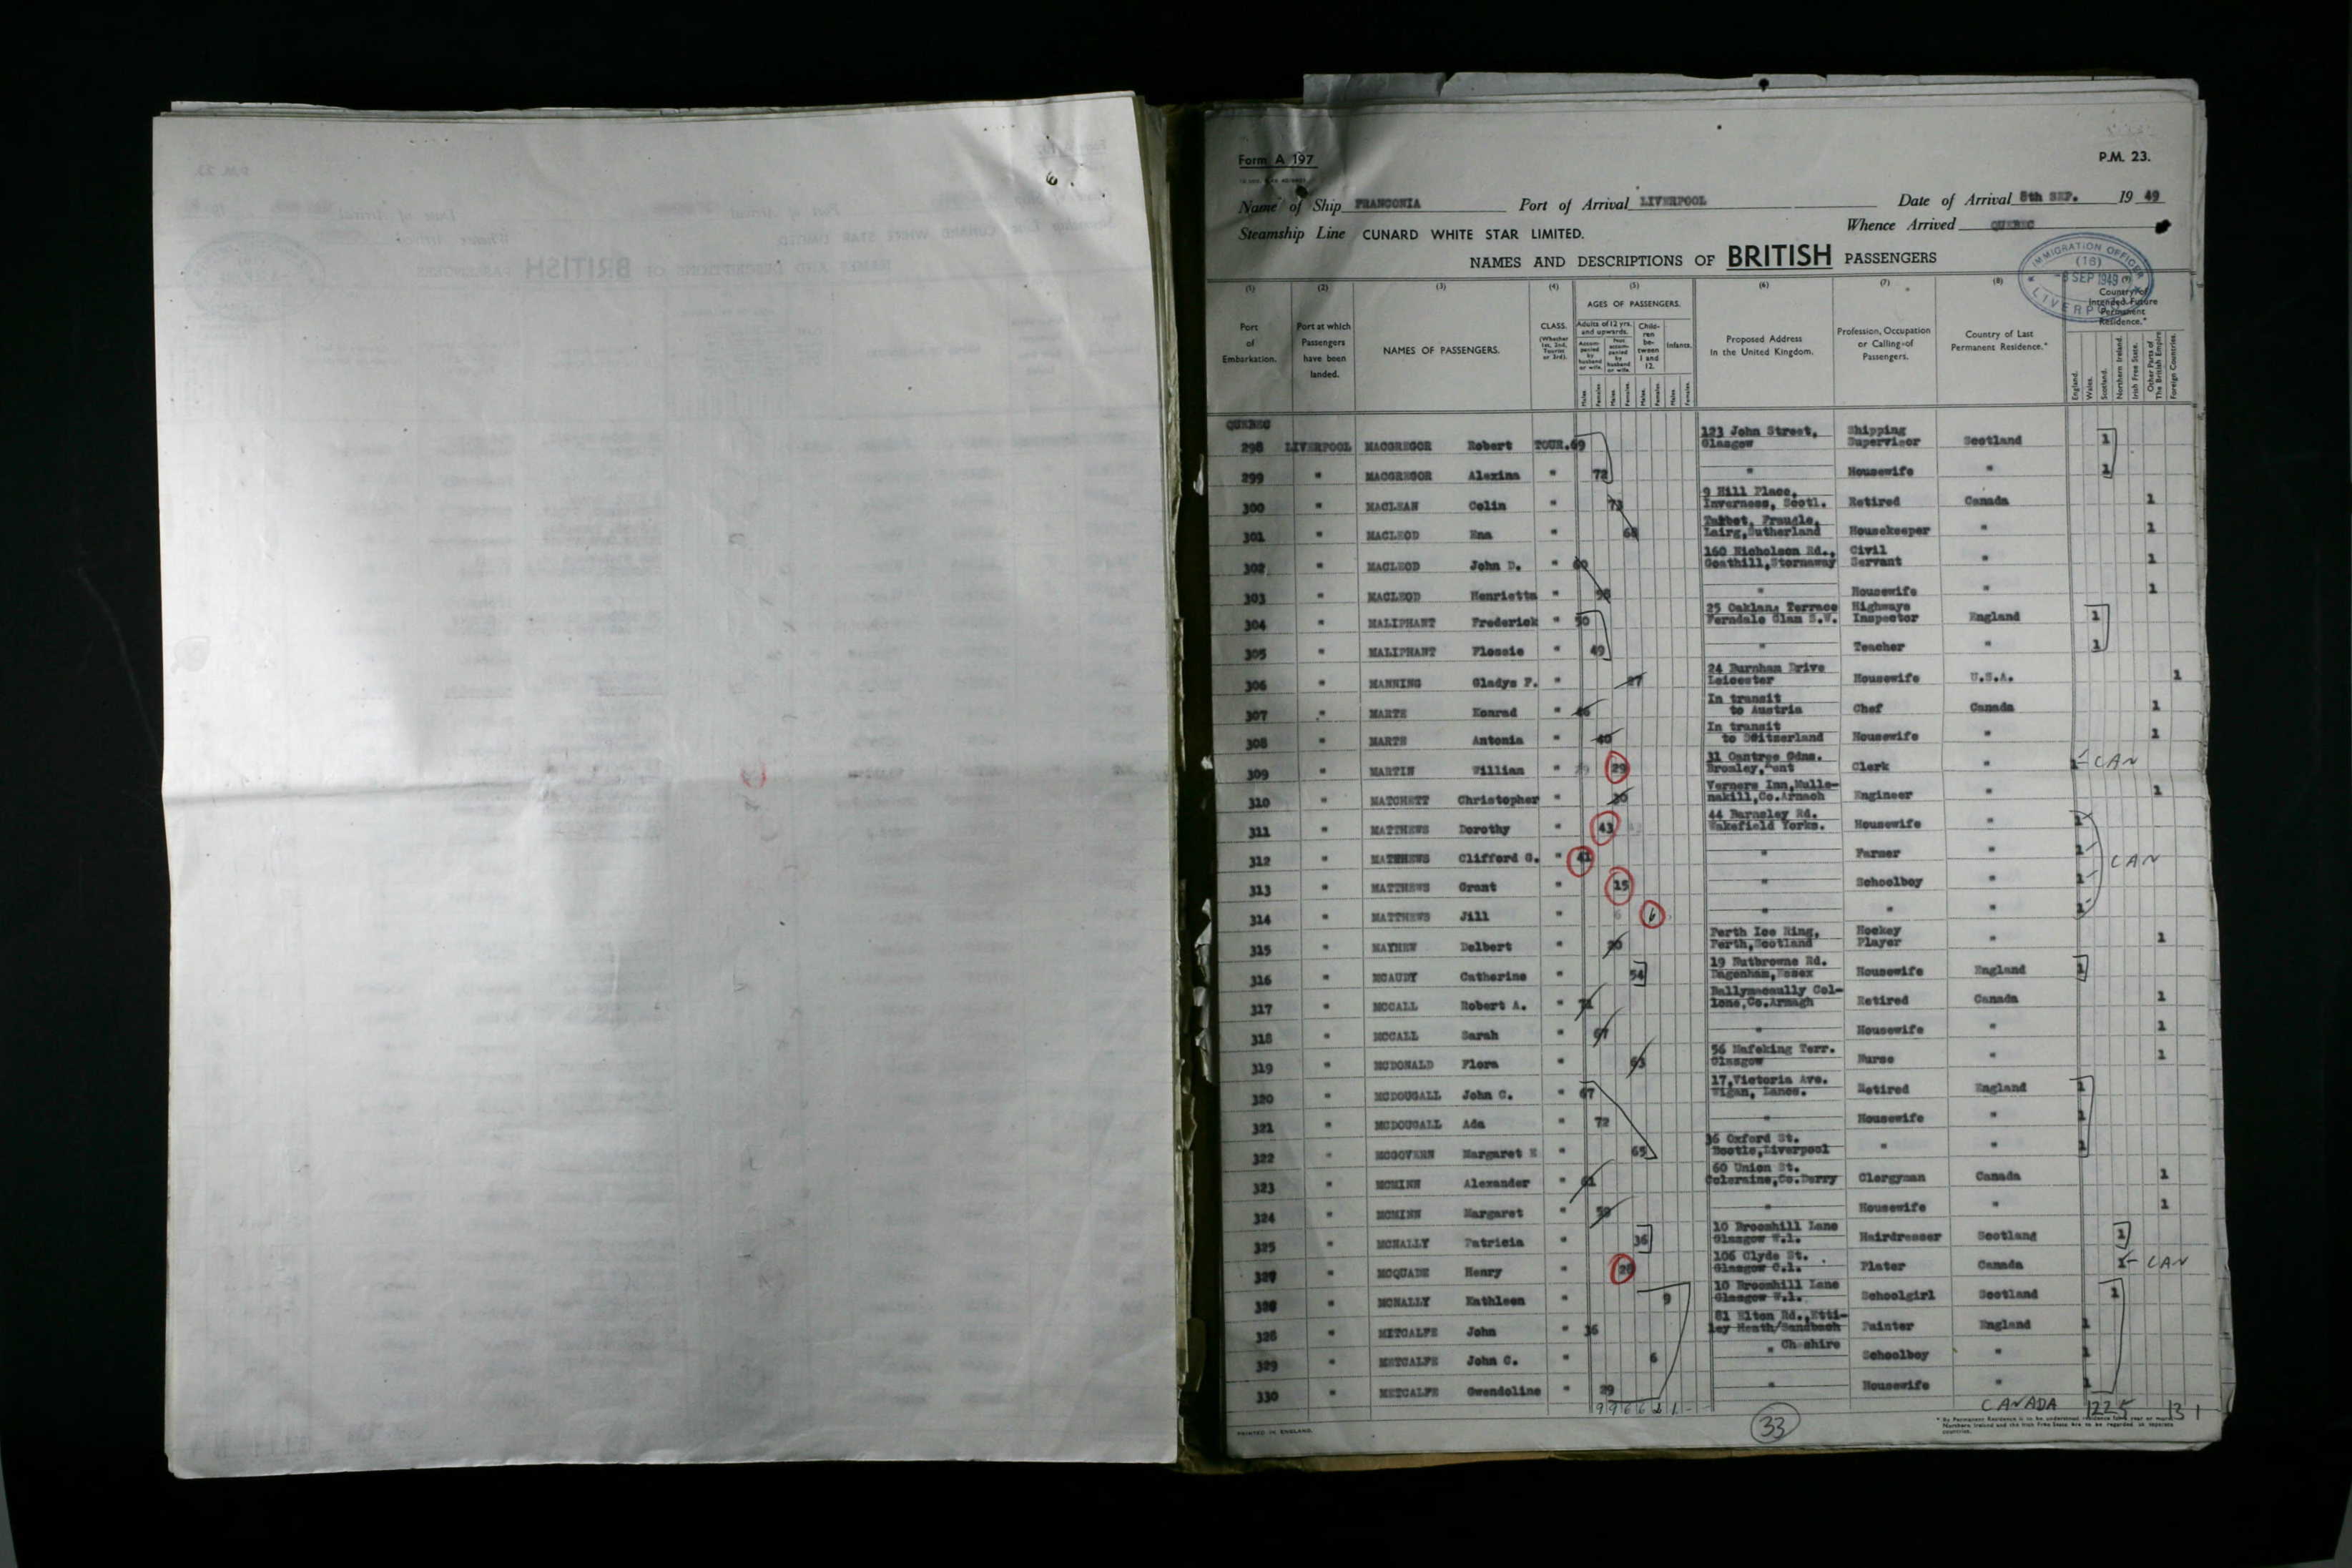 Form A 197
P.M. 23.
Name of Ship FRANCONIA Port of Arrival LIVERPOOL Date of Arrival 8th SEP. 19 49
Steamship Line CUNARD WHITE STAR LIMITED. Whence Arrived QUEBEC
NAMES AND DESCRIPTIONS OF BRITISH PASSENGERS
IMMIGRATION OFFICER (18) SEP 1949 LIVERPOOL
(1) (2) (3) (4) (5) (6) (7) (8)
Port of Embarkation.
Port at which Passengers have been landed.
NAMES OF PASSENGERS.
CLASS. (Whether 1st, 2nd, Tourist or 3rd).
AGES OF PASSENGERS.
Adults of 12 yrs. and upwards.
Accompanied by husband or wife.
Not accompanied by husband or wife.
Children between 1 and 12.
Infants.
Males Females Males Females Males Females Males Females
Proposed Address in the United Kingdom.
Profession, Occupation or Calling of Passengers.
Country of Last Permanent Residence.*
Country of Intended Future Permanent Residence.*
England. Wales. Scotland. Northern Ireland. Irish Free State. Other Parts of The British Empire Foreign Countries.
QUEBEC
298 LIVERPOOL MACGREGOR Robert TOUR. 69 123 John Street, Glasgow Shipping Supervisor Scotland 1
299 " MACGREGOR Alexina " 72 " Housewife " 1
300 " MACLEAN Colin " 73 9 Hill Place, Inverness, Scotl. Retired Canada 1
301 " MACLEOD Ena " Lairg, Sutherland Housekeeper " 1
302 " MACLEOD John D. " 60 160 Nicholson Rd., Goathill, Stornaway Civil Servant " 1
303 " MACLEOD Henrietta " " Housewife " 1
304 " MALIPHANT Frederick " 50 25 Oaklans Terrace Ferndale Glam S.W. Highways Inspector England 1
305 " MALIPHANT Flossie " 49 " Teacher " 1
306 " MANNING Gladys F. " 24 Burnham Drive Leicester Housewife U.S.A. 1
307 " MARTE Konrad " 46 In transit to Austria Chef Canada 1
308 " MARTE Antonia " 40 In transit to Switzerland Housewife " 1
309 " MARTIN William " 29 31 Cantree Gdns. Bromley, Kent Clerk " 1 - CAN
310 " MATCHETT Christopher " 30 Verners Inn, Mullenakill, Co.Armach Engineer " 1
311 " MATTHEWS Dorothy " 43 44 Barnsley Rd. Wakefield Yorks. Housewife " 1
312 " MATTHEWS Clifford G. " 41 " Farmer " 1 CAN
313 " MATTHEWS Grant " 15 " Schoolboy " 1
314 " MATTHEWS Jill " 6 " " " 1
315 " MAYHEW Delbert " 20 Perth Ice Ring, Perth, Scotland Hockey Player " 1
316 " MCAUDY Catherine " 54 19 Nutbrowne Rd. Dagenham, Essex Housewife England 1
317 " MCCALL Robert A. " 71 Ballymacaully Collone, Co.Armagh Retired Canada 1
318 " MCCALL Sarah " 67 " Housewife " 1
319 " MCDONALD Flora " 63 56 Mafeking Terr. Glasgow Nurse " 1
320 " MCDOUGALL John C. " 67 17, Victoria Ave. Wigan, Lancs. Retired England 1
321 " MCDOUGALL Ada " 72 " Housewife " 1
322 " MCGOVERN Margaret E " 65 36 Oxford St. Bootle, Liverpool " " 1
323 " MCMINN Alexander " 61 60 Union St. Coleraine, Co.Derry Clergyman Canada 1
324 " MCMINN Margaret " " Housewife " 1
325 " MCNALLY Patricia " 36 10 Broomhill Lane Glasgow W.1. Hairdresser Scotland 1
327 " MCQUADE Henry " 106 Clyde St. Glasgow C.1. Plater Canada 1 - CAN
328 " MCNALLY Kathleen " 9 10 Broomhill Lane Glasgow W.1. Schoolgirl Scotland 1
328 " METCALFE John " 36 81 Elton Rd., Ettiley Heath/Sandbach Cheshire Painter England 1
329 " METCALFE John C. " 6 " Schoolboy " 1
330 " METCALFE Gwendoline " 29 " Housewife " 1
9 9 6 6 2 1 - 33 CANADA 12 2 5 13 1
PRINTED IN ENGLAND.